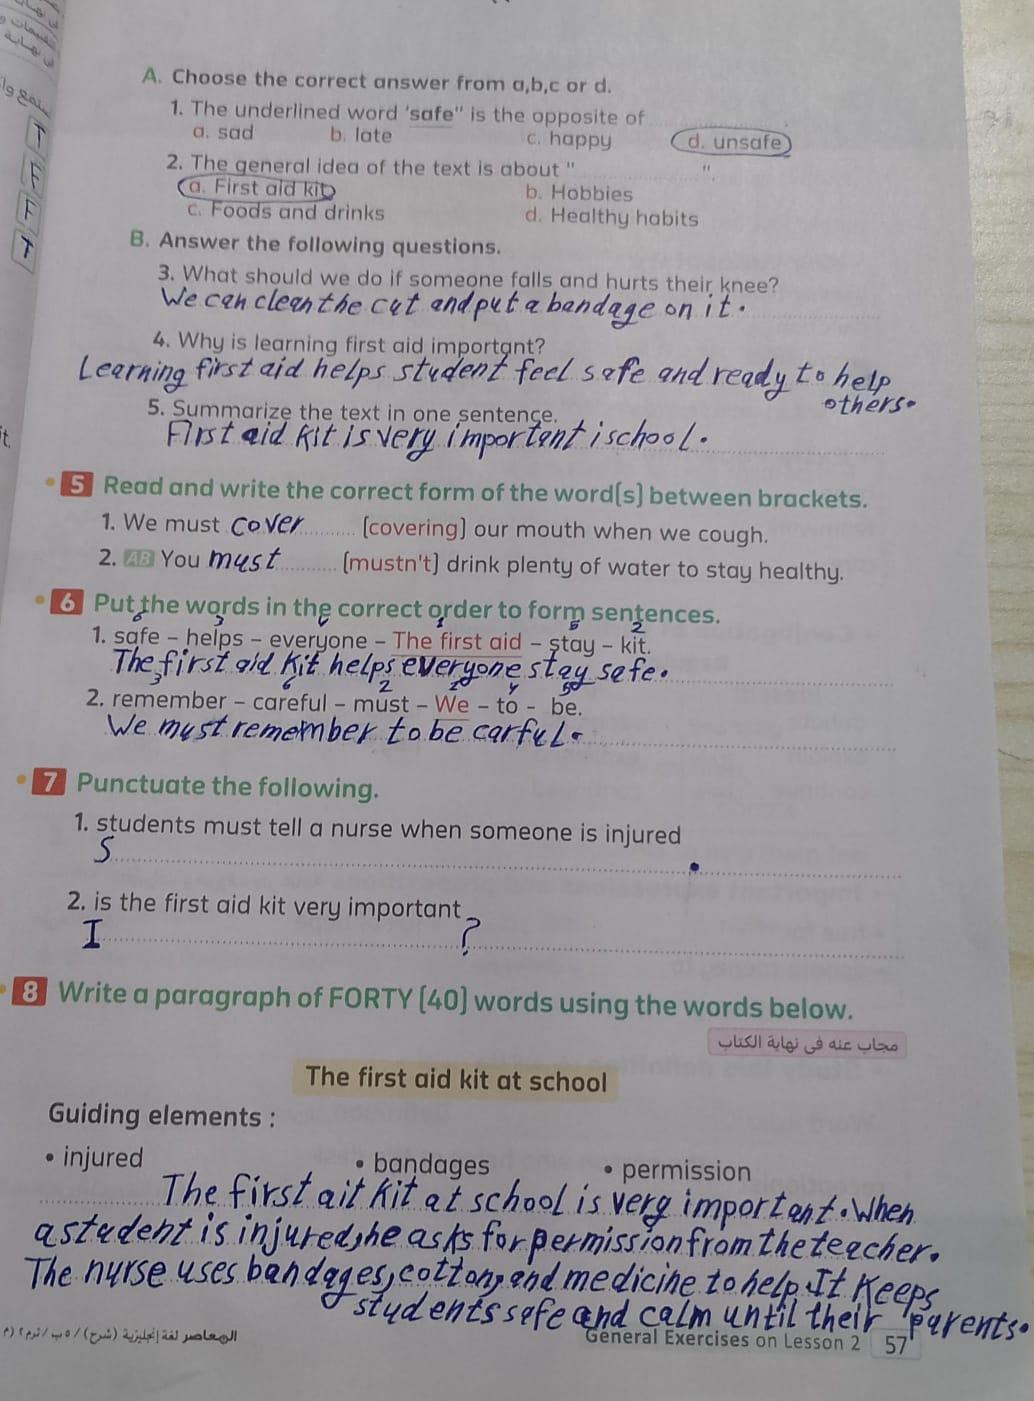 T
F
F
T
A. Choose the correct answer from a,b,c or d.
1. The underlined word 'safe" is the opposite of
a. sad b. late c. happy d. unsafe
2. The general idea of the text is about " ".
a. First aid kit b. Hobbies
c. Foods and drinks d. Healthy habits
B. Answer the following questions.
3. What should we do if someone falls and hurts their knee?
We can clean the cut and put a bandage on it.
4. Why is learning first aid important?
Learning first aid helps student feel safe and ready to help
others.
5. Summarize the text in one sentence.
First aid kit is very important i school.
it.
5 Read and write the correct form of the word(s) between brackets.
1. We must cover (covering) our mouth when we cough.
2. AB You must (mustn't) drink plenty of water to stay healthy.
6 Put the words in the correct order to form sentences.
1. safe - helps - everyone - The first aid - stay - kit.
The first aid Kit helps everyone stay safe.
3 6 2 1 4 5
2. remember - careful - must - We - to - be.
We must remember to be carful.
7 Punctuate the following.
1. students must tell a nurse when someone is injured
S .
2. is the first aid kit very important
I ?
8 Write a paragraph of FORTY (40) words using the words below.
مجاب عنه فى نهاية الكتاب
The first aid kit at school
Guiding elements :
• injured • bandages • permission
The first ait Kit at school is very important. When
a student is injured, he asks for permission from the teacher.
The nurse uses bandages, cotton, and medicine to help. It Keeps
students safe and calm until their parents.
المعاصر لغة إنجليزية (شرح) / ٥ ب / ترم ٢ (م General Exercises on Lesson 2 57